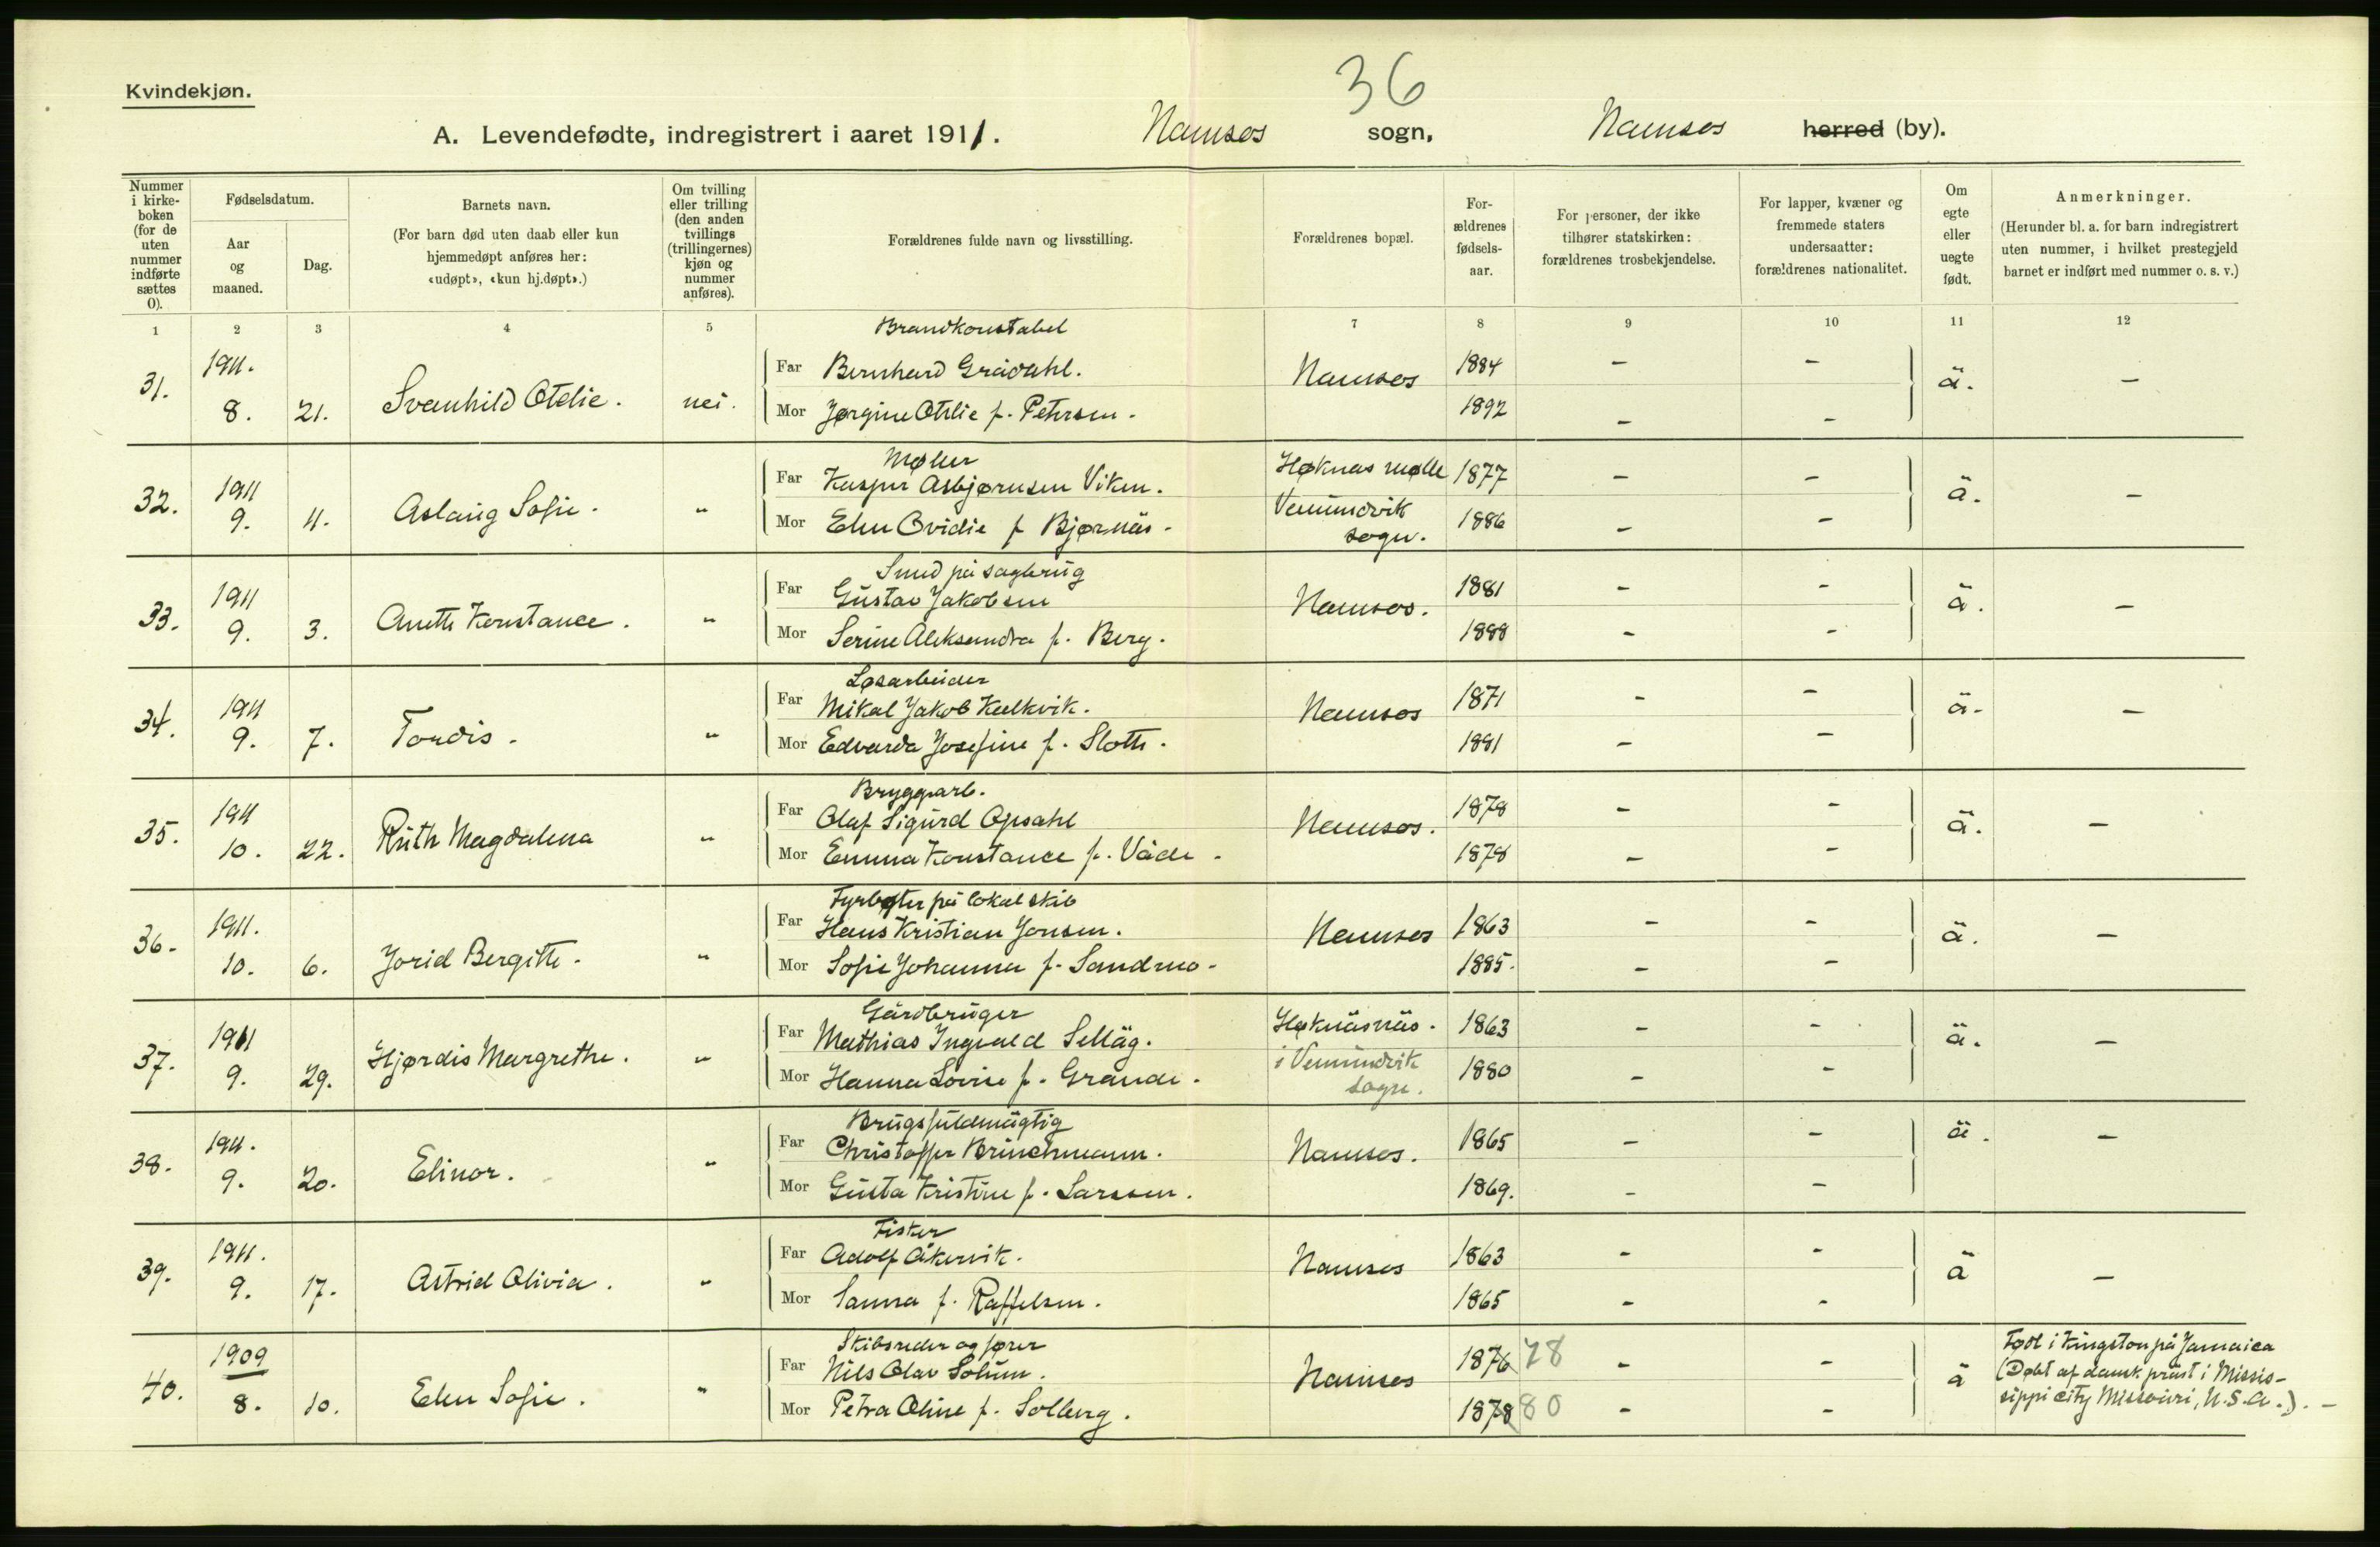 36
Kvindekjøn.
A. Levendefødte, indregistrert i aaret 1911. Namsos sogn, Namsos herred (by).
Nummer i kirke-boken (for de uten nummer indførte sættes 0).
Fødselsdatum.
Aar og maaned.
Dag.
Barnets navn.
(For barn død uten daab eller kun hjemmedøpt anføres her: «udøpt», «kun hj.døpt».)
Om tvilling eller trilling (den anden tvillings (trillingernes) kjøn og nummer anføres).
Forældrenes fulde navn og livsstilling.
Forældrenes bopæl.
For-ældrenes fødsels-aar.
For personer, der ikke tilhører statskirken: forældrenes trosbekjendelse.
For lapper, kvæner og fremmede staters undersaatter: forældrenes nationalitet.
Om egte eller uegte født.
Anmerkninger.
(Herunder bl. a. for barn indregistrert uten nummer, i hvilket prestegjeld barnet er indført med nummer o. s. v.)
1 2 3 4 5 7 8 9 10 11 12
Brandkonstabel
31. 1911. 8. 21. Svanhild Otelie. nei.
Far Bernhard Grådahl. Namsos 1884 - - ä. -
Mor Jørgine Otelie f. Petersen. 1892 - -
Møller
32. 1911 9. 4. Aslaug Sofie. "
Far Kaspar Asbjørnsen Viken. Høknes mølle 1877 - - ä. -
Mor Elen Ovidie f Bjørnäs. Vemundvik sogn. 1886 - -
Smed på sagbrug
33. 1911 9. 3. Anette Konstance. "
Far Gustav Jakobsen Namsos. 1881 - - ä. -
Mor Serine Aleksandra f. Berg. 1888 - -
Løsarbeider
34. 1911 9. 7. Tordis. "
Far Mikal Jakob Kalkvik. Namsos 1871 - - ä. -
Mor Edvarda Josefine f. Slotte. 1881 - -
Bryggearb.
35. 1911 10. 22. Ruth Magdalena "
Far Olaf Sigurd Opsahl Namsos. 1878 - - ä. -
Mor Emma Konstance f. Våde. 1878 - -
Fyrbøter på lokalskib
36. 1911. 10. 6. Jorid Bergitte. "
Far Hans Kristian Jonsen. Namsos 1863 - - ä. -
Mor Sofie Johanna f. Sandmo. 1885. - -
Gårdbruger
37. 1911 9. 29. Hjørdis Margrethe. "
Far Mathias Ingvald Selläg. Høknäsnäs. 1863 - - ä. -
Mor Hanna Lovise f. Grande. i Vemundvik sogn. 1880 - -
Brugsfuldmägtig
38. 1911. 9. 20. Elinor. "
Far Christoffer Brinchmann. Namsos. 1865 - - ä. -
Mor Gusta Kristine f. Larssen. 1869. - -
Fisker
39. 1911. 9. 17. Astrid Olivia. "
Far Adolf Åkervik. Namsos 1863 - - ä -
Mor Sanna f. Raffelsen. 1865 - -
Skibsreder og fører
40. 1909 8. 10. Elen Sofie. "
Far Nils Olav Solum. Namsos 1876 78 - - ä
Mor Petra Oline f. Solberg. 1878 80 - -
Født i Kingston på Jamaica
(Døbt af dansk präst i Missis-
sippi city Missouri, U.S.A.). -